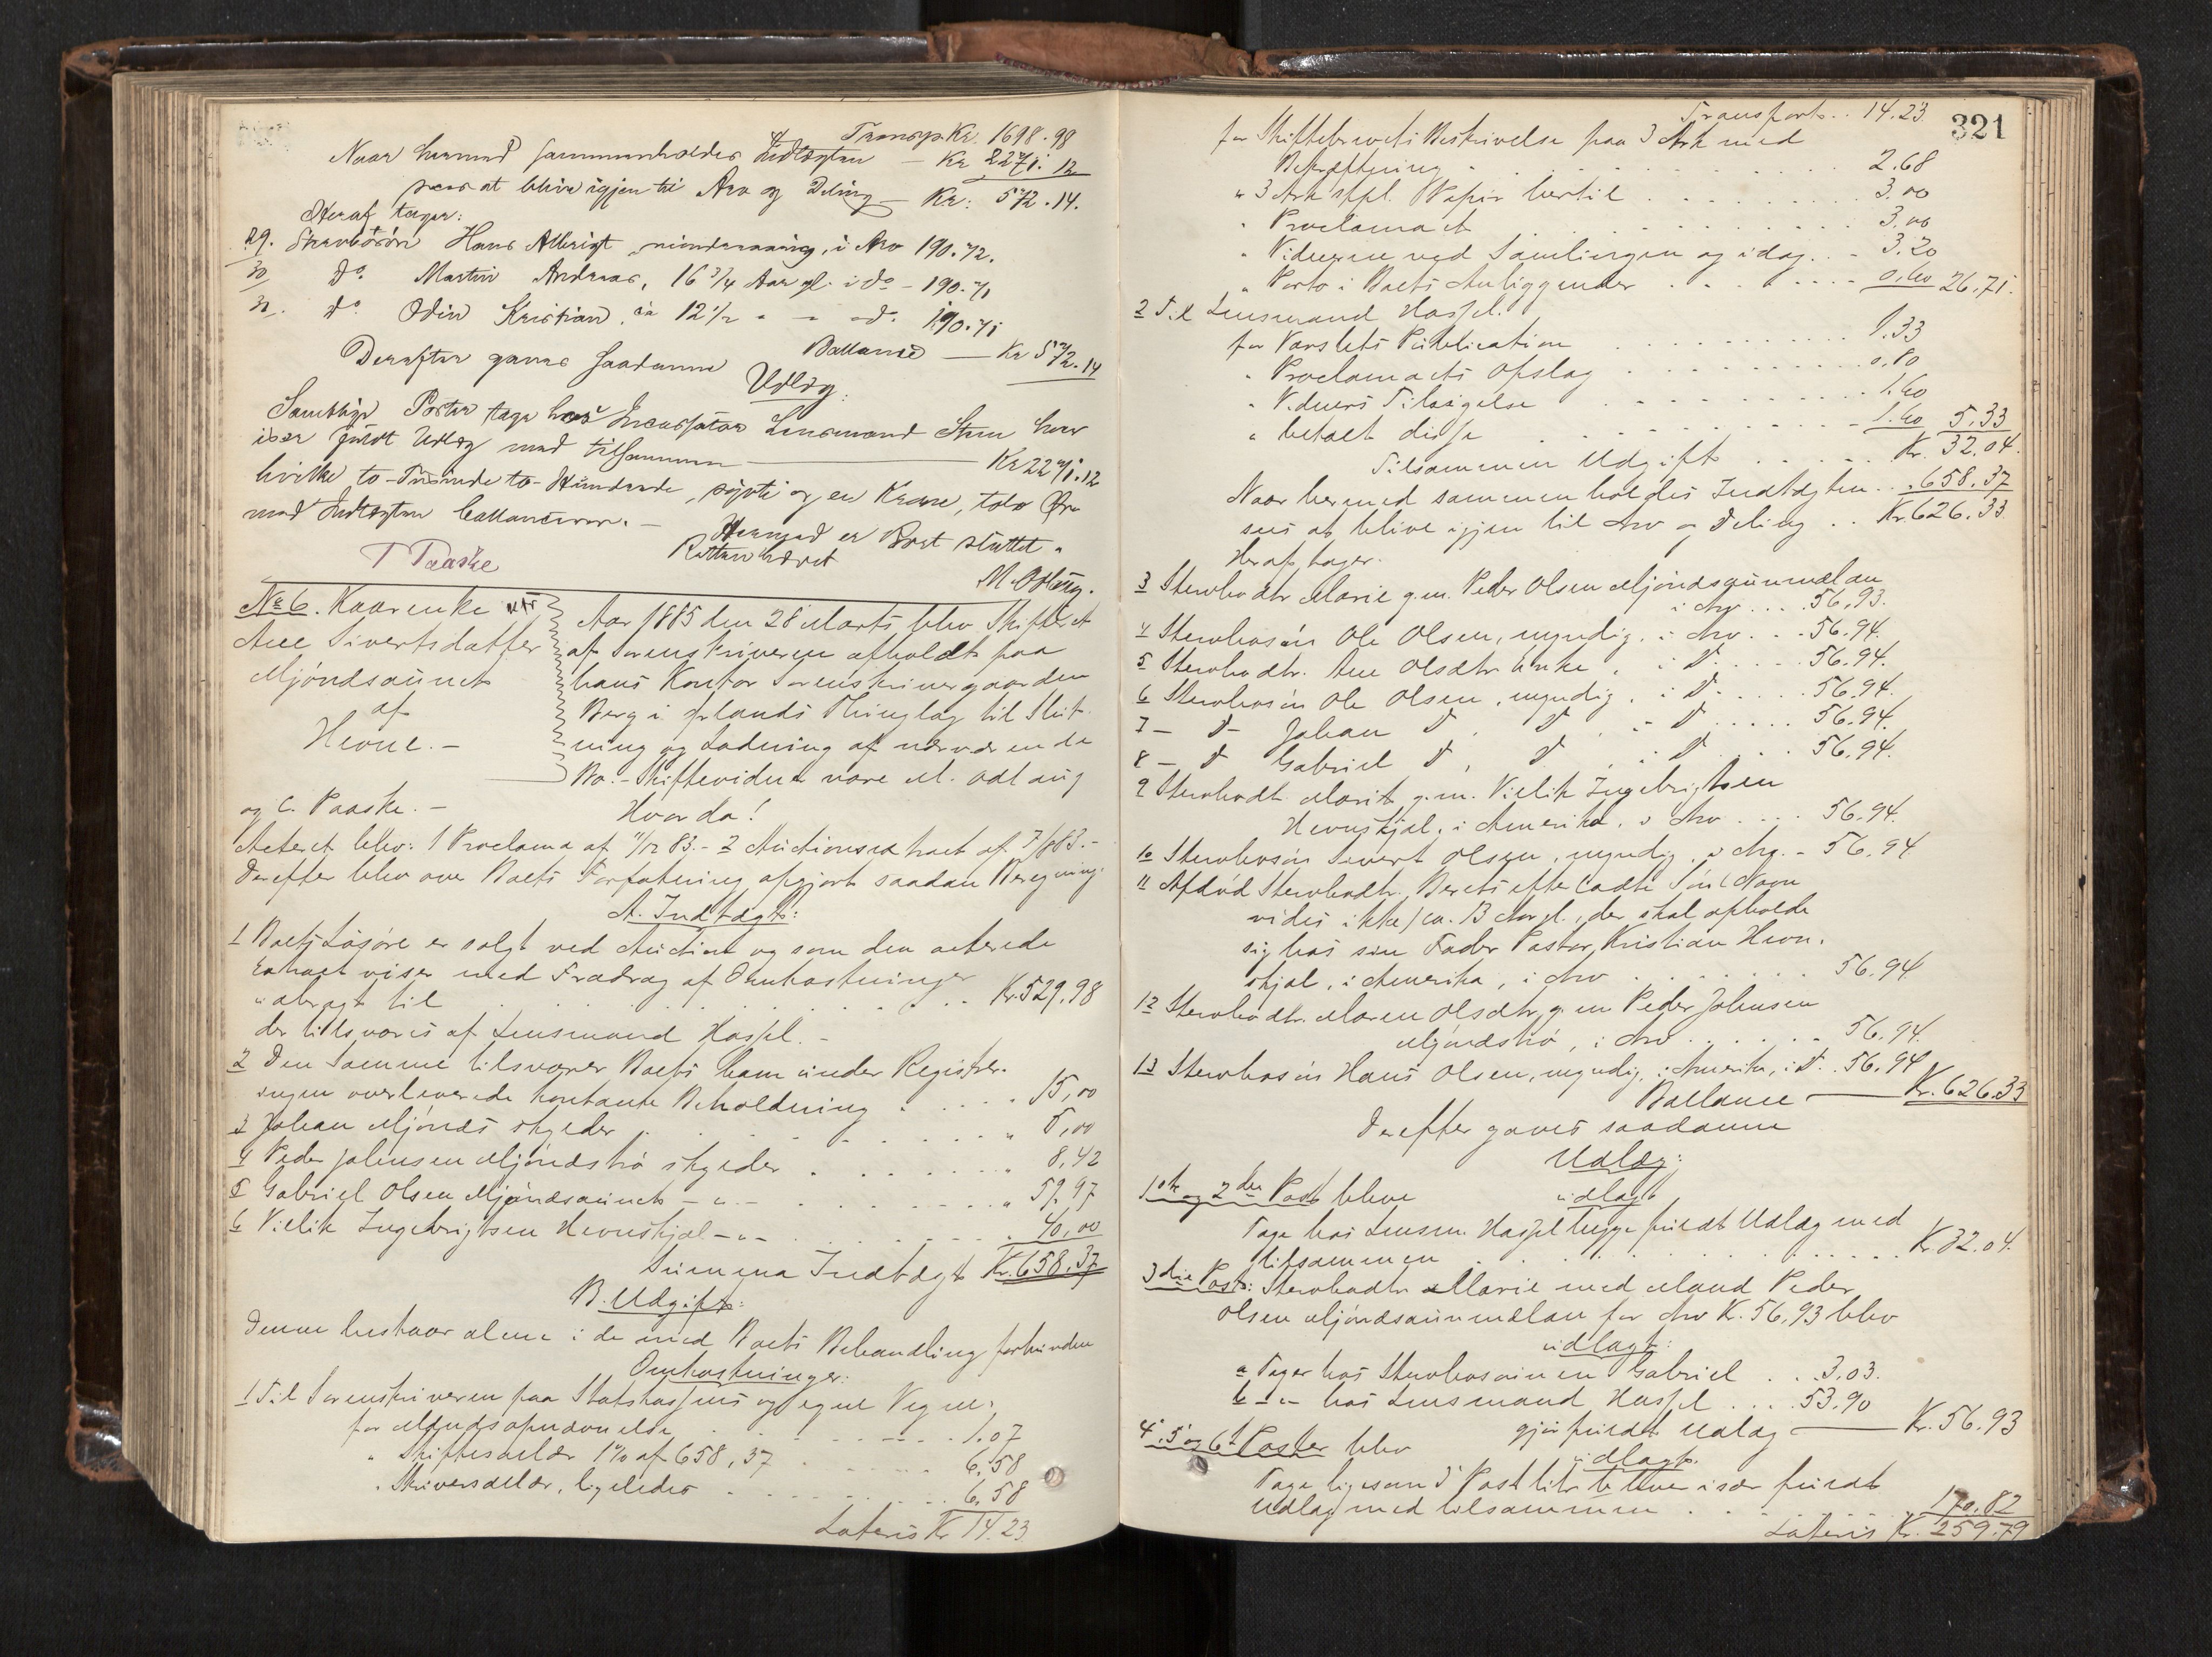 Transp. Kr. 1698.98
Naar hermed sammenholdes Indtægten — Kr 2271. 12
sees at blive igjen til Arv og Deling — Kr: 572.14.
Heraf tager:
29. Stervbosøn Hans Albrigt, mindreaarig, i Arv 190.72.
30 do. Martin Andreas, 16 3/4 Aar gl. i do - 190.71
31. do. Odin Kristian, ca 12 1/2 " - - do. 190.71
Ballance — Kr 572.14
Derefter gaves saadanne
Udlæg:
Samtlige Poster tage hos Incassator Lensmand Steen hver
især fuldt Udlæg med tilsammen — Kr 2271.12
hvilke to-Tusinde to-Hundrede, sytti og en Krone, tolv Øre
med Indtægten ballancerer. —
Hermed er Boet sluttet.
Retten hævet
T Paaske
M. Odlaug.
No 6. Kaarenke
Ane Sivertsdatter
Mjöndsaunet
af
Hevne. —
Aar 1885 den 28 Marts blev Skifteret
af Sorenskriveren afholdt paa
hans Kontor Sorenskrivergaarden
Berg i Ørlands Thinglag til Slut-
ning og Lodning af nærværende
Bo. - Skiftevidner vare M. Odlaug
og C. Paaske. —
Hvorda!
Acteret blev: 1 Proclama af 11/12 83. - 2 Auctionsextract af 7/8 83. -
Derefter blev over Boets Forfatning opgjort saadan Beregning:
A. Indtægt:
1 Boets Løsøre er solgt ved Auction og som den acterede
extract viser med Fradrag af Omkostninger
udbragt til . . . . . . Kr. 529,98
der tilsvares af Lensmand Hassel. -
2 Den Samme tilsvarer Boets ham under Registre-
ringen overleverede kontante Beholdning . . . . 15,00
3 Johan Mjönes skylder . . . . . . " 5,00
4 Peder Johnsen Mjöndstrø skylder . . . . " 8,42
5 Gabriel Olsen Mjøndsaunet - " - . . . . " 59,97
6 Vielik Ingebrigtsen Hevnskjel - " - . . . . " 40,00
Summa Indtægt Kr. 658,37
B. Udgift:
Denne bestaar alene i de med Boets Behandling forbundne
Omkostninger:
1 Til Sorenskriveren paa Statskassens og egne Vegne:
for . . . . . 1.07
" Skiftesalær 1% af 658,37 . . . . 6.58
" Skriversalær, ligeledes . . . . . 6,58
Lateris Kr 14.23
321
Transport . . 14.23
for Skiftebrevets Beskrivelse paa 3 Ark med
Bekræftning . . . . . . . 2.68
" 3 Ark stpl. Papir hertil . . . . . 3.00
" Proclamaet . . . . . . . 3.00
" Vidnerne ved Samlingen og idag . . - 3.20
" Porto i Boets Anliggender . . . . 0.60 26.71.
2 Til Lensmand Hassel.
for Varslets Publication . . . . 1.33
" Proclamaets Opslag . . . . . 0.80
" Vidners Tilsigelse . . . . . 1.60
" betalt disse . . . . . . 1.60 5.33
Tilsammen Udgift . . . . Kr. 32.04.
Naar hermed sammenholdes Indtægten . . " 658.37
sees at blive igjen til Arv og Deling . . Kr. 626.33
Heraf tager.
3 Stervbodtr Marie g. m. Peder Olsen Mjöndsaunmælan
i Arv . . . . 56.93.
4 Stervbosön Ole Olsen, myndig, i Arv . . . 56.94.
5 Stervbodtr. Ane Olsdtr Enke, i do . . . 56.94.
6 Stervbosön Ole Olsen, myndig, i do . . . 56.94.
7 - do - Johan do, do, - do . . . . 56.94.
8 - do Gabriel do, do, i do . . . 56.94.
9 Stervbodtr. Marit g. m. Vielik Ingebrigtsen
Hevnskjel, i Amerika, i Arv . . . . 56.94.
10 Stervbosön Sivert Olsen, myndig, i Arv. - 56.94
11 Afdød Stervbodtr. Berets efterladte Sön (Navn
vides ikke) ca. 13 Aar gl., der skal opholde
sig hos sin Fader Pastor Kristian Hevn-
skjel, i Amerika, i Arv . . . . . 56.94
12 Stervbodtr. Maren Olsdtr, g. m. Peder Johnsen
Mjöndstrø, i Arv . . . . . 56.94.
13 Stervbosön Hans Olsen, myndig, i Amerika, i do. 56.94
Ballance — Kr. 626.33
Derefter gaves saadanne
Udlæg:
1ste og 2den Post bleve
udlagt
Tage hos Lensm. Hassel begge fuldt Udlæg med
tilsammen . . . . . . Kr 32.04.
3die Post: Stervbodtr. Marie med Mand Peder
Olsen Mjöndsaunmælan for Arv K. 56,93 blev
udlagt:
a Tager hos Stervbosönnen Gabriel . . 3,03.
b - " - hos Lensmand Hassel . . . 53.90
gjør fuldt Udlæg — Kr. 56.93
4', 5' og 6' Poster blev
udlagt.
Tage ligesom 3' Post litr. b hver især fuldt
Udlæg med tilsammen . . . . . 170.82
Lateris Kr. 259.79